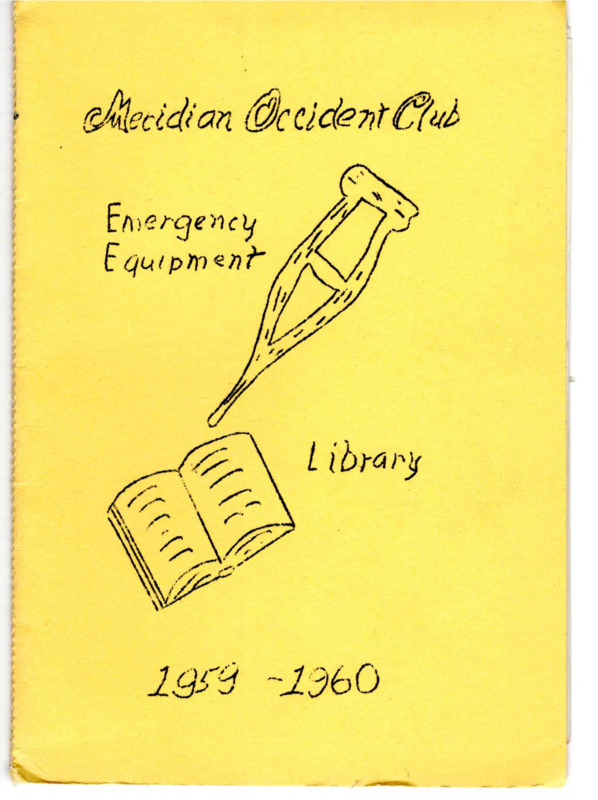 Meridian Occident Club
Emergency
Equipment
Library
1959 -1960